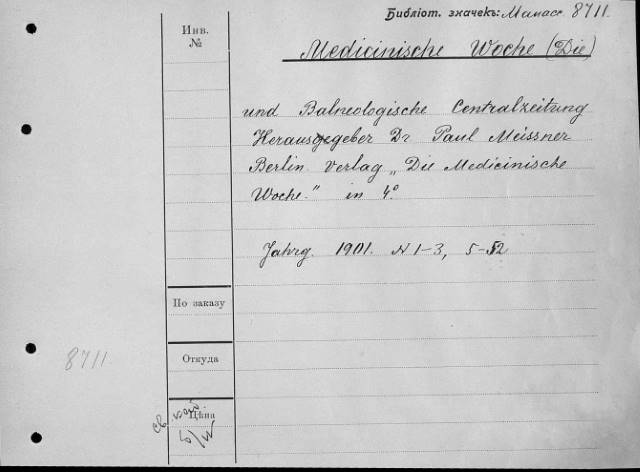 Библіот. значекъ: Манасс 8711.
Инв.
№
Medicinische Woche (Die)
und Balneologische Centralzeitung
Herausgegeber Dr Paul Meissner
Berlin. Verlag „Die Medicinische
Woche.“ in 4°.
Jahrg. 1901. N 1-3, 5-52
По заказу
8711
Откуда
Цѣна